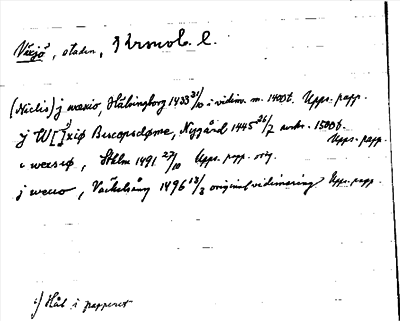 Växjö, staden, Kronob. l.
(Niclis) j wexio, Hälsingborg 1433 31/10 i vidim. m. 1400t. Upps. papp.
j W[ ]xiø Biscopsdøme, Nygård 1445 26/7 avskr. 1500t. Upps. papp.
i wexiø, Sthlm 1491 27/10 Upps. papp. orig.
j wexio, Vackelsång 1496 13/3 originalvidimering Upps. papp.
1) Hål i papperet